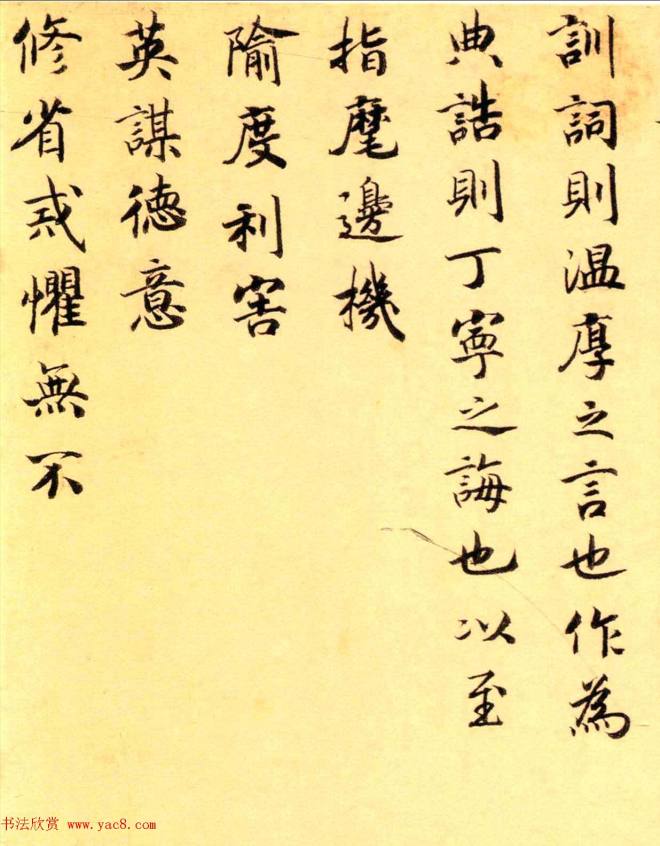 訓詞則温厚之言也作為
典誥則丁寧之誨也以至
指麾邊機
隃度利害
英謀德意
修省戒懼無不
书法欣赏 www.yac8.com